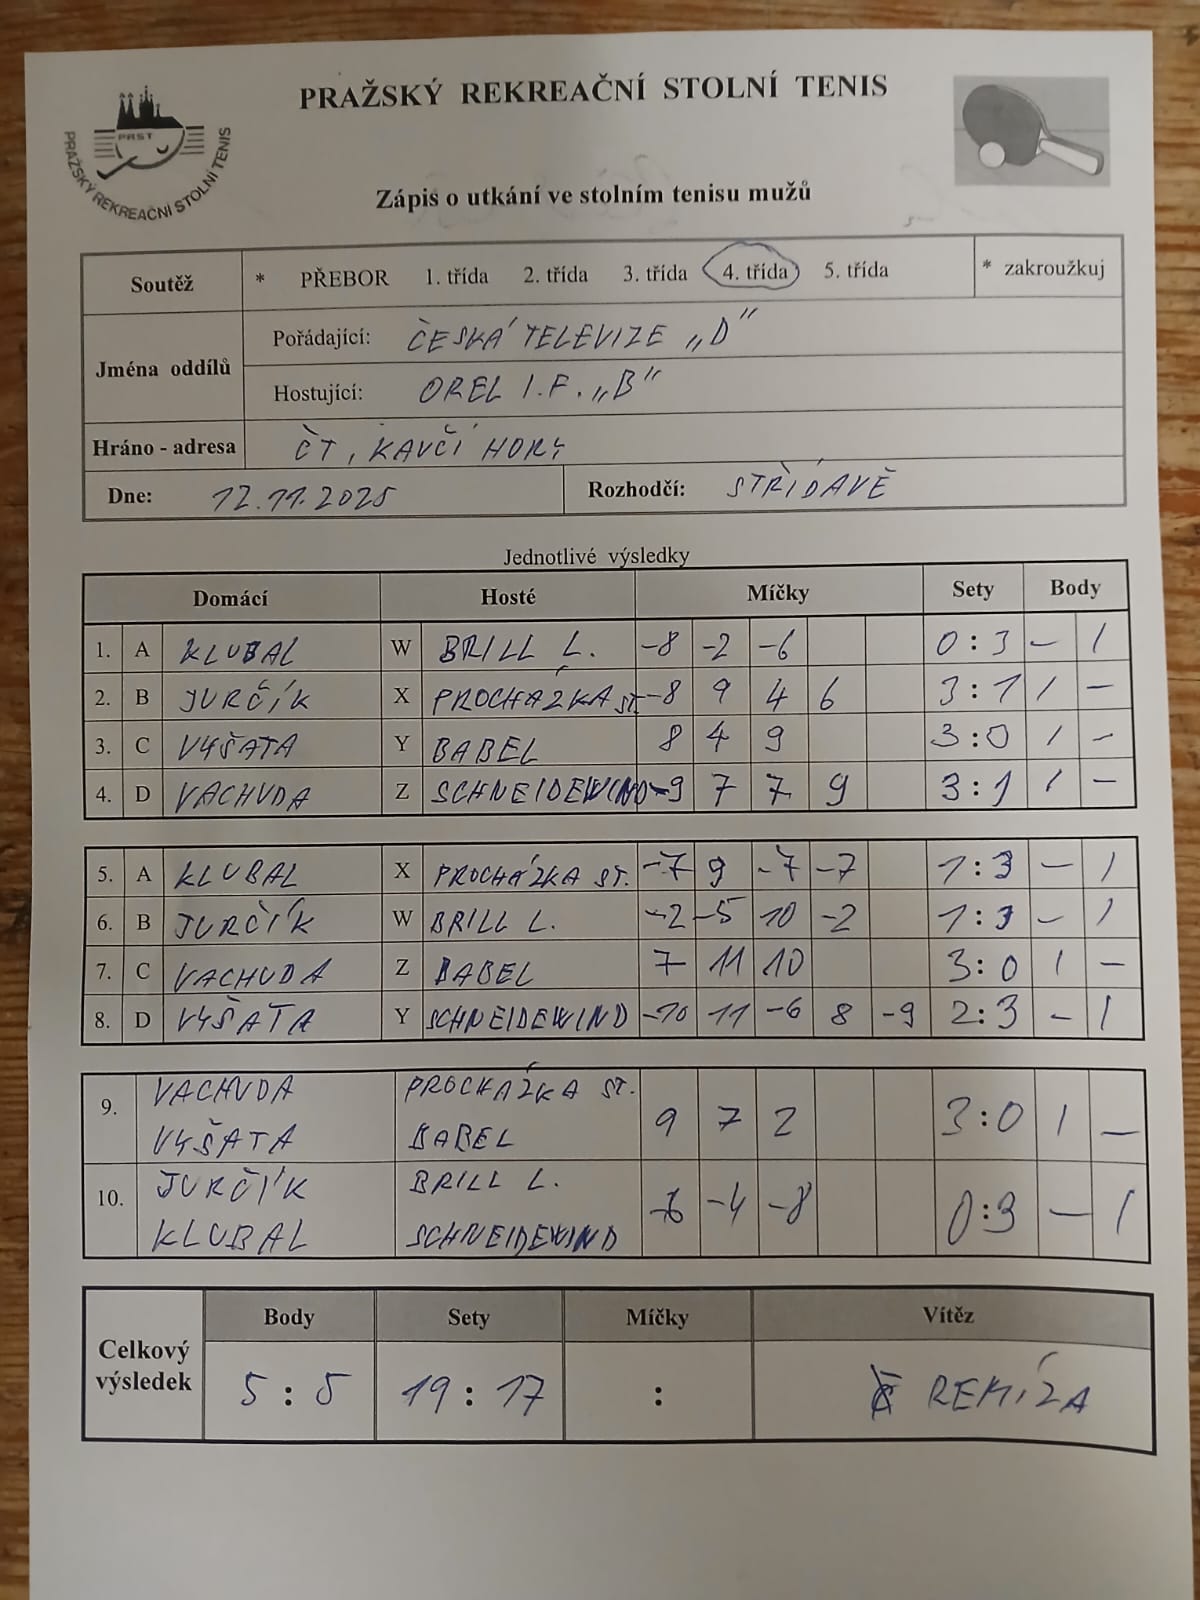 PRAŽSKÝ REKREAČNÍ STOLNÍ TENIS
PRST
PRAŽSKÝ REKREAČNÍ STOLNÍ TENIS
Zápis o utkání ve stolním tenisu mužů
Soutěž * PŘEBOR 1. třída 2. třída 3. třída 4. třída 5. třída * zakroužkuj
Jména oddílů
Pořádající: ČESKÁ TELEVIZE „D"
Hostující: OREL I.F. „B"
Hráno - adresa ČT, KAVČÍ HORY
Dne: 12.11.2025 Rozhodčí: STŘÍDAVĚ
Jednotlivé výsledky
Domácí Hosté Míčky Sety Body
1. A KLUBAL W BRILL L. -8 -2 -6 0:3 – 1
2. B JURČÍK X PROCHÁZKA ST. -8 9 4 6 3:1 1 –
3. C VYŠATA Y BABEL 8 4 9 3:0 1 –
4. D VACHUDA Z SCHNEIDEWIND -9 7 7 9 3:1 1 –
5. A KLUBAL X PROCHÁZKA ST. -7 9 -7 -7 1:3 – 1
6. B JURČÍK W BRILL L. -2 -5 10 -2 1:3 – 1
7. C VACHUDA Z BABEL 7 11 10 3:0 1 –
8. D VYŠATA Y SCHNEIDEWIND -10 11 -6 8 -9 2:3 – 1
VACHUDA PROCHÁZKA ST.
9. 9 7 2 3:0 1 –
VYŠATA BABEL
JURČÍK BRILL L.
10. -6 -4 -8 0:3 – 1
KLUBAL SCHNEIDEWIND
Celkový výsledek
Body Sety Míčky Vítěz
5:5 19:17 : REMÍZA